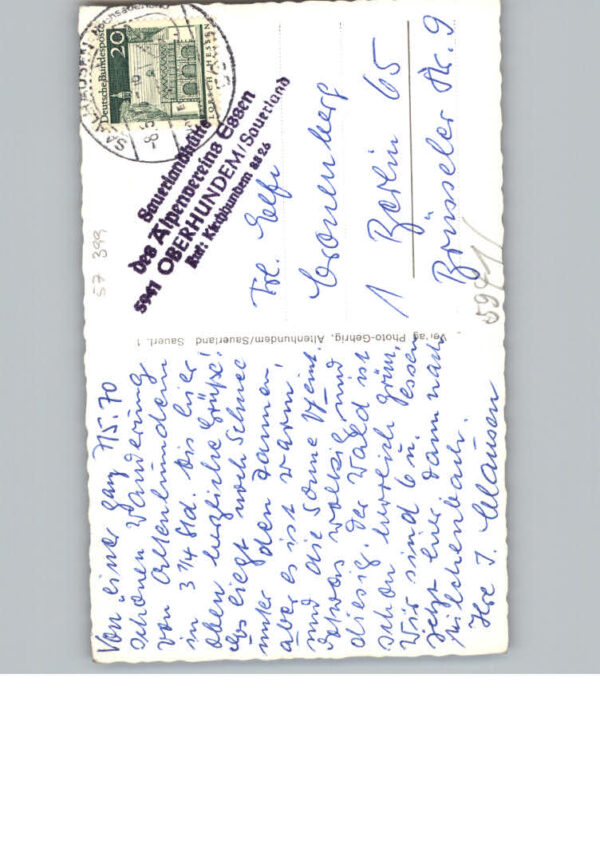 7/5.70
Von einer ganz
schönen Wanderung
von Altenhundem
in 3 1/4 Std. bis hier
oben herzliche Grüße!
Es liegt noch Schnee
unter den Tannen,
aber es ist warm,
und die Sonne scheint.
etwas wolkig und
diesig. Der Wald ist
schon herrlich grün,
Wir sind 6 u. essen
jetzt hier dann nach
Hilchenbach.
Ihre I. Clausen
Verlag Photo-Gehrig, Altenhundem/Sauerland Sauerl. 1
Sauerlandhütte
des Alpenvereins Essen
5941 OBERHUNDEM/Sauerland
Ruf: Kirchhundem 8826
Deutsche Bundespost
20
LORSCH HESSEN
Frl. Elfi
Cronenberg
1 Berlin 65
Brüsseler Str. 9
57 399
5941/